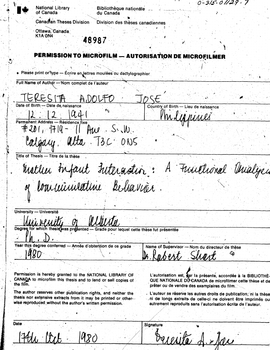 National Library of Canada
Bibliothèque nationale du Canada
Canadian Theses Division
Division des thèses canadiennes
Ottawa, Canada
K1A 0N4
48987
PERMISSION TO MICROFILM — AUTORISATION DE MICROFILMER
• Please print or type — Écrire en lettres moulées ou dactylographier
Full Name of Author — Nom complet de l'auteur
TERESITA ADOLFO JOSE
Date of Birth — Date de naissance
Country of Birth — Lieu de naissance
12. 12. 1941
Philippines
Permanent Address — Résidence fixe
#201, 1719- 11 Ave. S.W.
Calgary, Alta. T3C
Title of Thesis — Titre de la thèse
Mother Infant Interaction: A Functional Analysis
of Communicative Behavior.
University — Université
University of Alberta
Degree for which thesis was presented — Grade pour lequel cette thèse fut présentée
Ph. D.
Year this degree conferred — Année d'obtention de ce grade
Name of Supervisor — Nom du directeur de thèse
1980
Dr. Robert Short
Permission is hereby granted to the NATIONAL LIBRARY OF
CANADA to microfilm this thesis and to lend or sell copies of
the film.
L'autorisation est, par la présente, accordée à la BIBLIOTHÈ-
QUE NATIONALE DU CANADA de microfilmer cette thèse et de
prêter ou de vendre des exemplaires du film.
The author reserves other publication rights, and neither the
thesis nor extensive extracts from it may be printed or other-
wise reproduced without the author's written permission.
L'auteur se réserve les autres droits de publication; ni la thèse
ni de longs extraits de celle-ci ne doivent être imprimés ou
autrement reproduits sans l'autorisation écrite de l'auteur.
Date
Signature
17th Oct. 1980
Teresita A. Jose